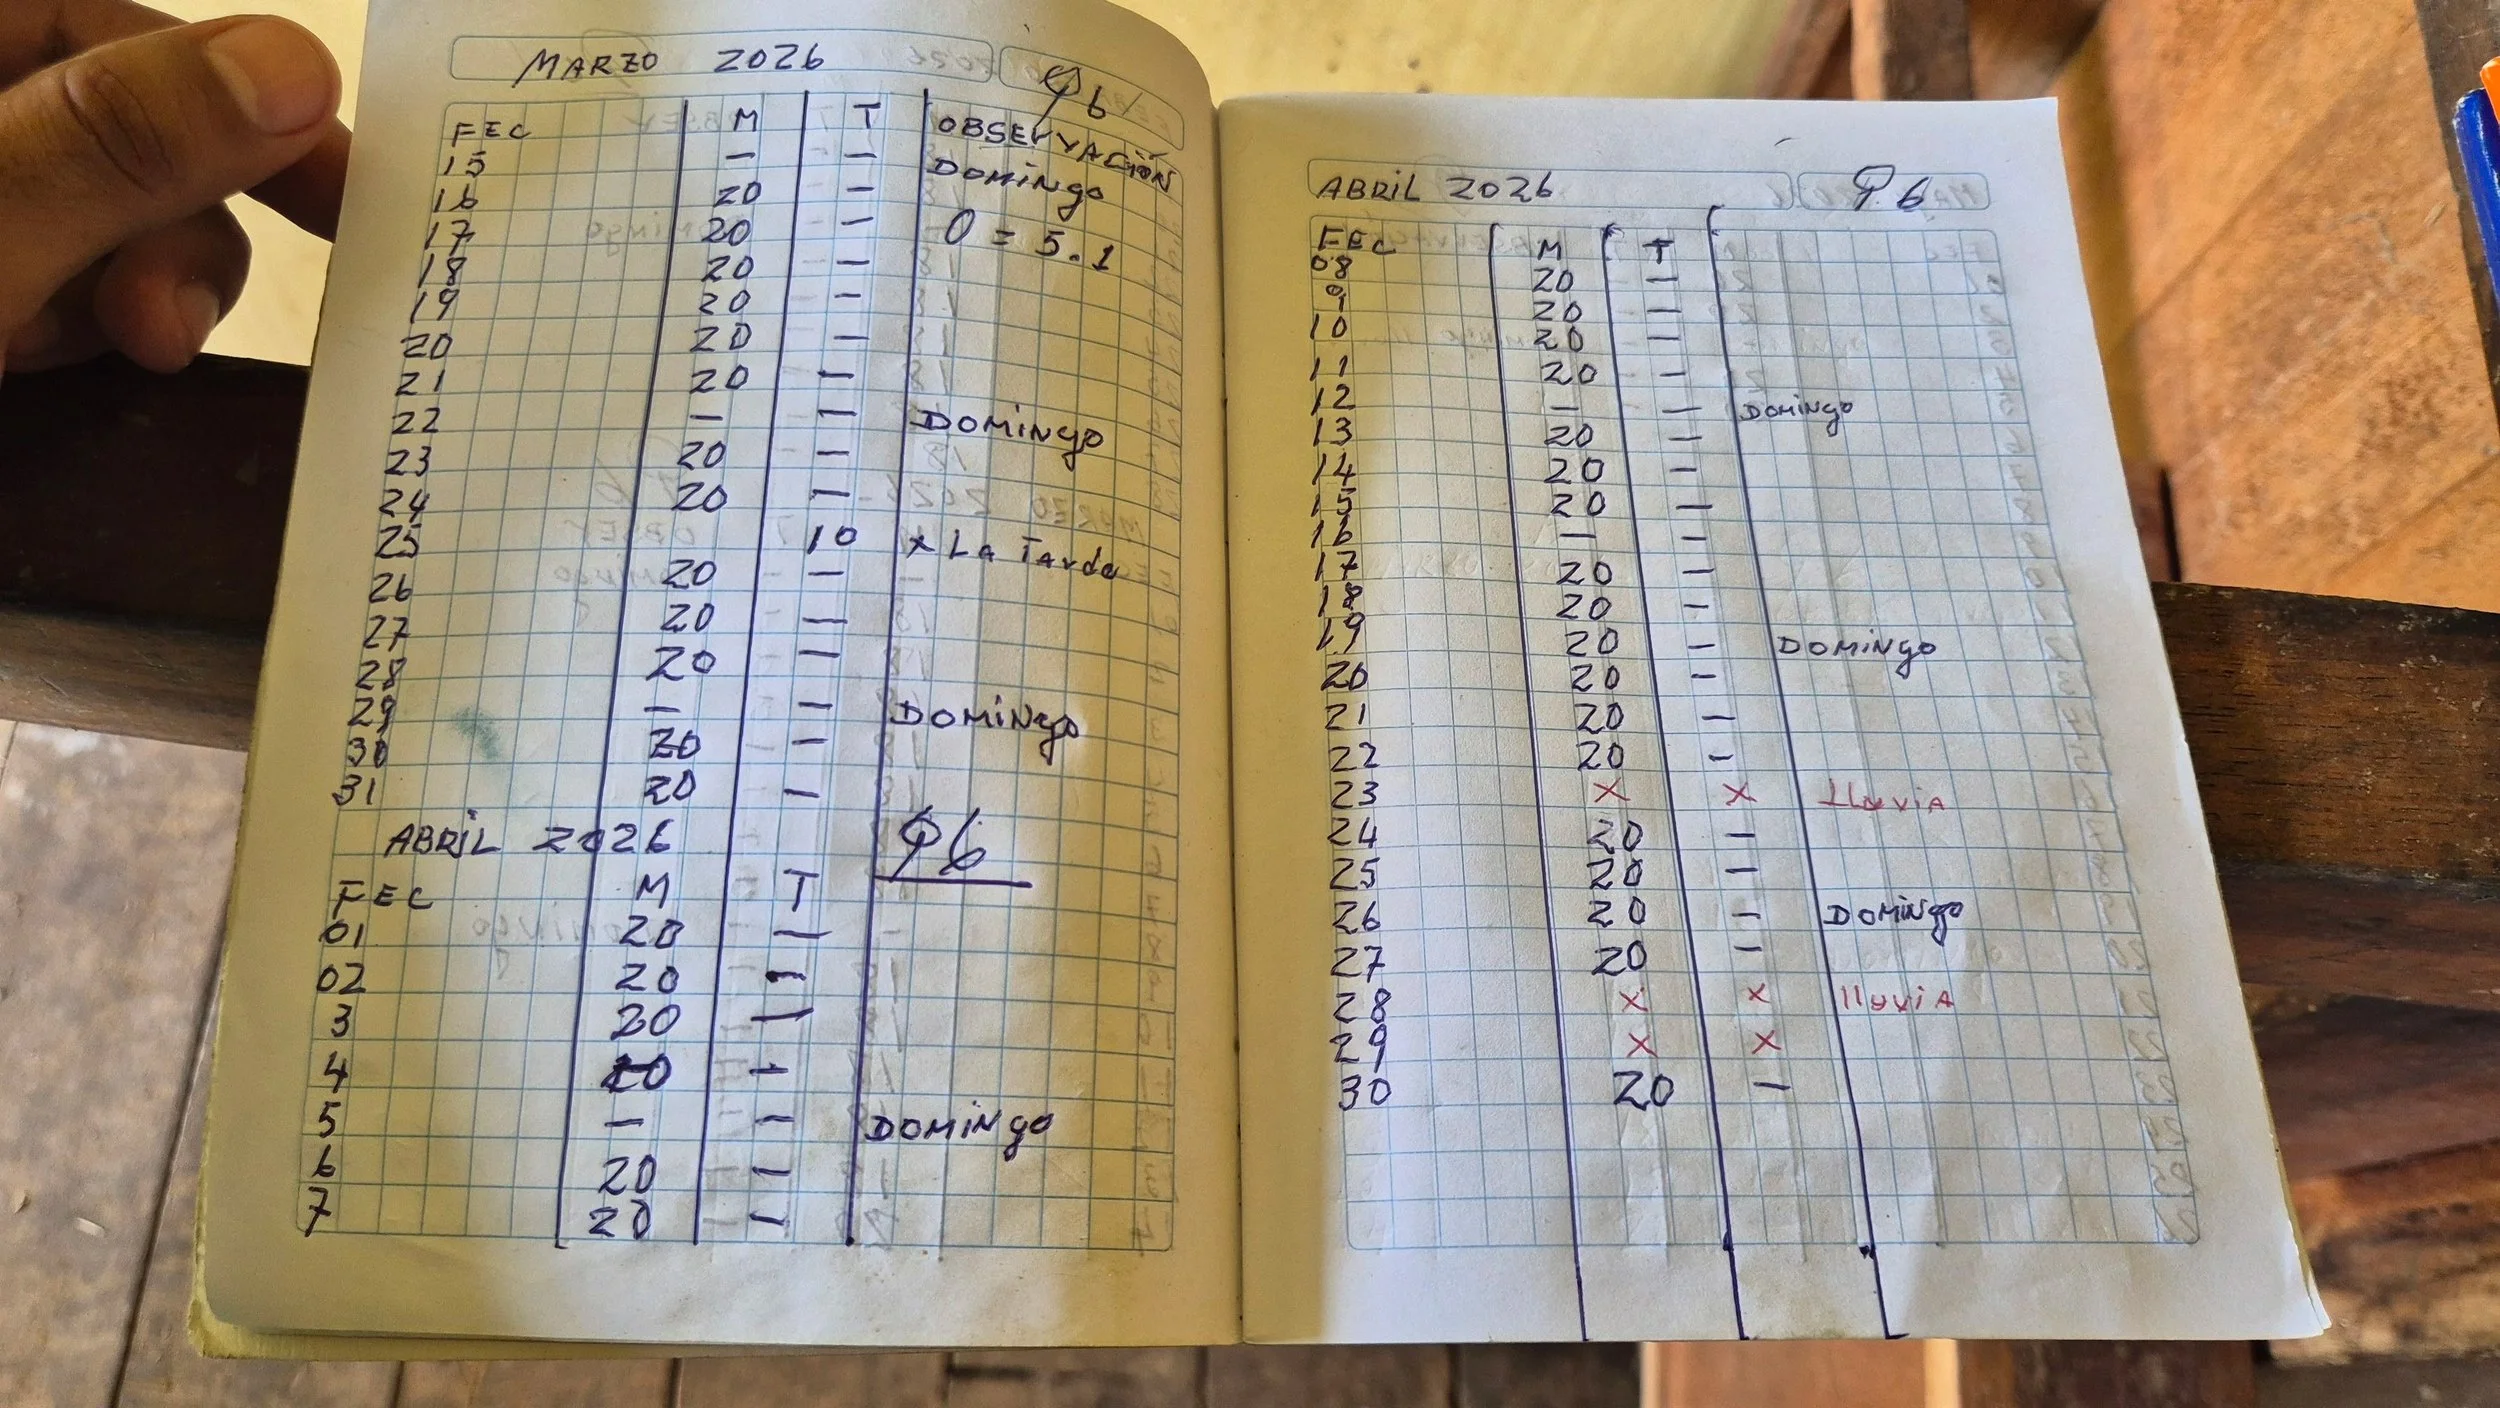 MARZO 2026 P6
FEC M T OBSERVACIÓN
15 — — DOMINGO
16 20 —
17 20 — O = 5.1
18 20 —
19 20 —
20 20 —
21 20 —
22 — — DOMINGO
23 20 —
24 20 —
25 10 x LA TARDE
26 20 —
27 20 —
28 20 —
29 — — DOMINGO
30 20 —
31 20 —
ABRIL 2026 P6
FEC M T
01 20 —
02 20 —
3 20 —
4 20 —
5 — — DOMINGO
6 20 —
7 20 —
ABRIL 2026 P.6
FEC M T
08 20 —
9 20 —
10 20 —
11 20 —
12 — — DOMINGO
13 20 —
14 20 —
15 20 —
16 — —
17 20 —
18 20 —
19 20 — DOMINGO
20 20 —
21 20 —
22 20 —
23 x x lluviA
24 20 —
25 20 —
26 20 — DOMINGO
27 20 —
28 x x lluviA
29 x x
30 20 —